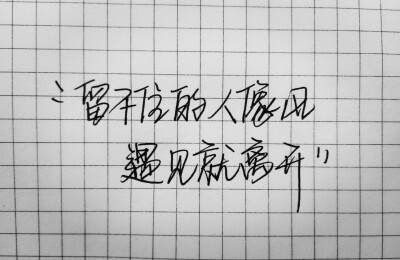 "留不住的人像风
遇见就离开"